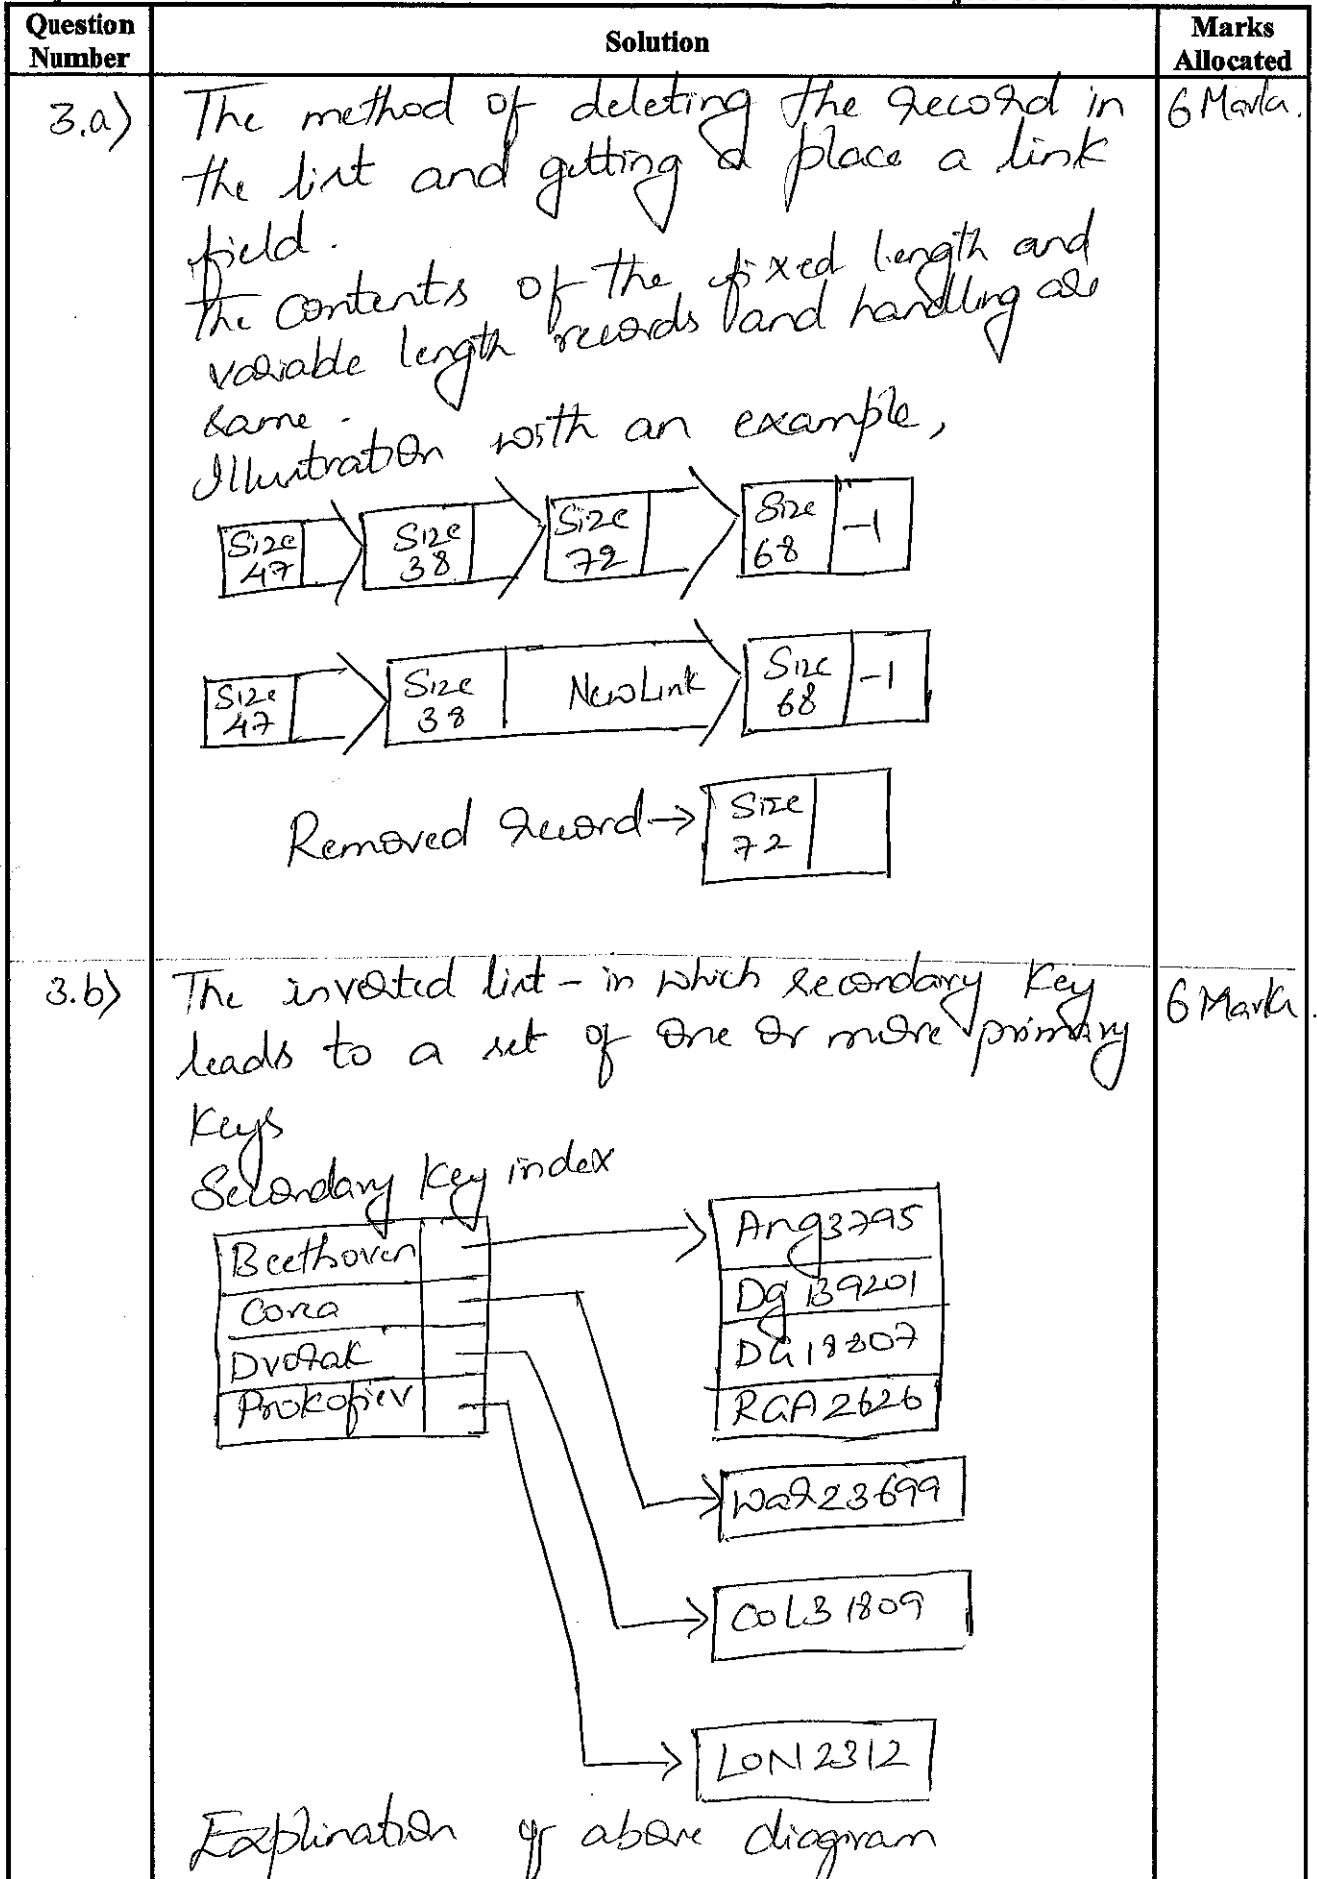 Question Number
Solution
Marks Allocated
3.a)
The method of deleting the record in
the list and getting a place a link
field.
The contents of the fixed length and
variable length records and handling are
same.
Illustration with an example,
6 Marks.
Size 47
Size 38
Size 72
Size 68
-1
Size 47
Size 38
New Link
Size 68
-1
Removed record →
Size 72
3.b)
The inverted list - in which secondary key
leads to a set of one or more primary
keys
6 Marks.
Secondary key index
Beethoven
Corea
Dvorak
Prokofiev
Ang3795
Dg 139201
DG18807
RCA2626
War23699
COL31809
LON2312
Explination of above diagram